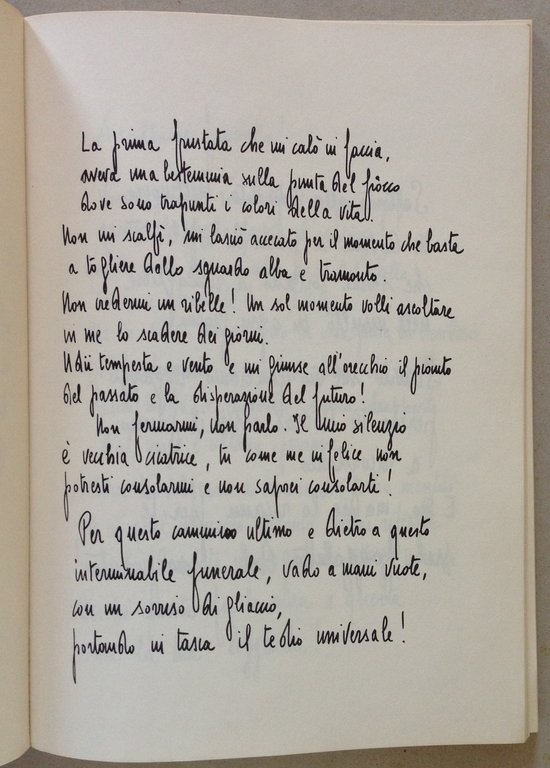 La prima frustata che mi calò in faccia,
aveva una bestemmia sulla punta del fiocco
dove sono trapunti i colori della vita.
Non mi scalfì, mi lasciò accecato per il momento che basta
a togliere dallo sguardo alba e tramonto.
Non credermi un ribelle! Un sol momento volli ascoltare
in me lo scadere dei giorni.
Udii tempesta e vento e mi giunse all'orecchio il pianto
del passato e la disperazione del futuro!
Non fermarmi, non parlo. Il mio silenzio
è vecchia cicatrice, tu come me infelice non
potresti consolarmi e non saprei consolarti!
Per questo cammino ultimo e dietro a questo
interminabile funerale, vado a mani vuote,
con un sorriso di ghiaccio,
portando in tasca il tedio universale!